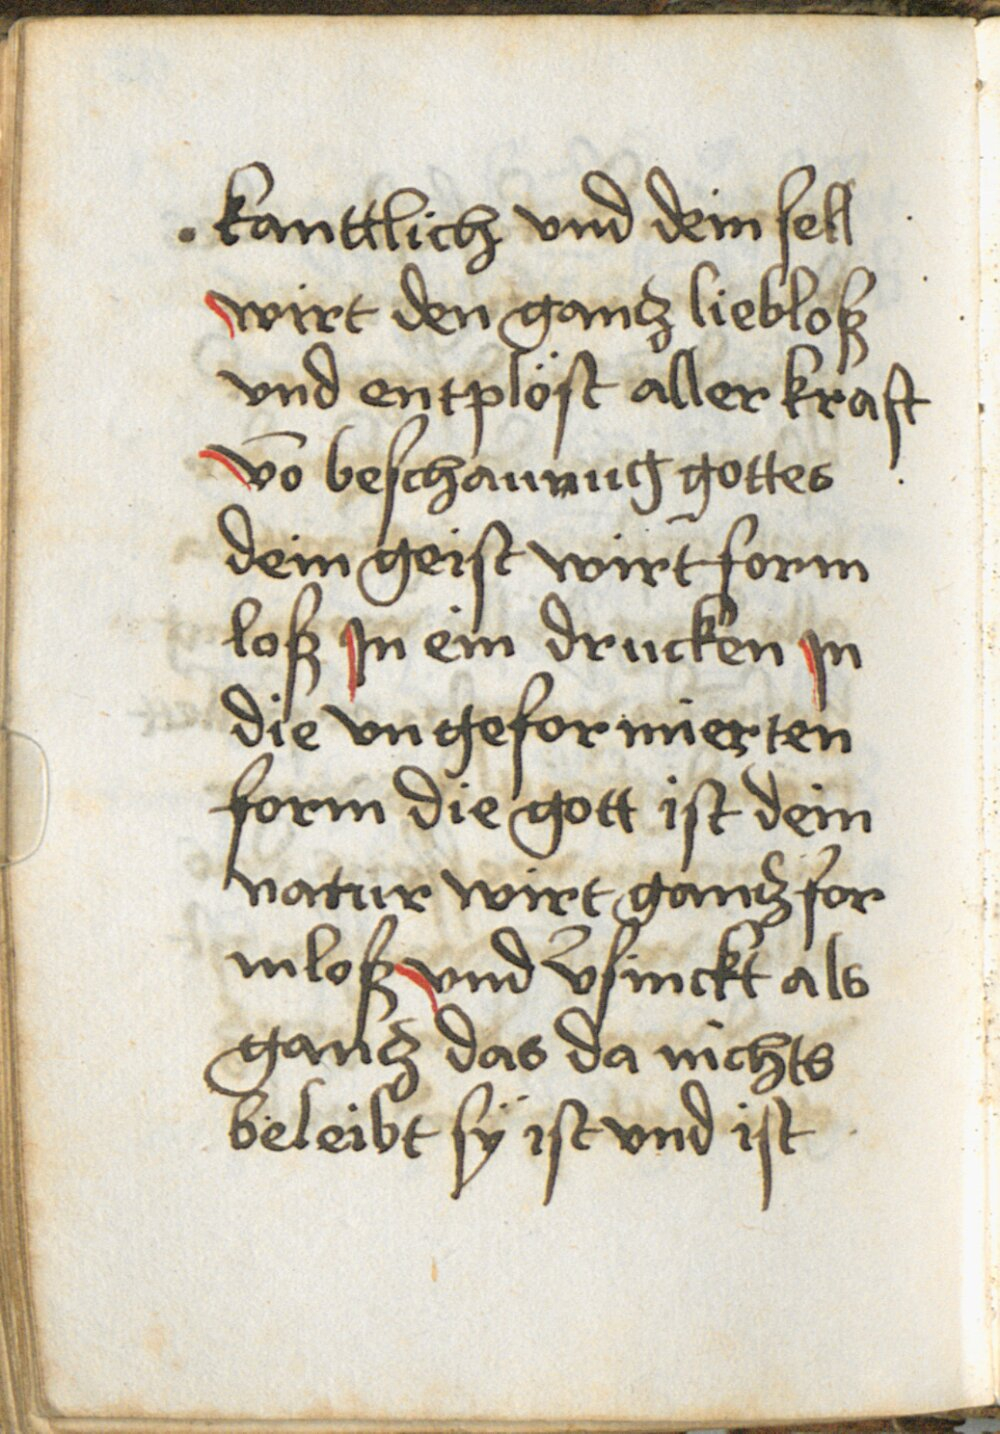 kanttlich vnd dein sell
wirt den gantz liebloß
vnd entplöst aller kraft
vō beschaunug gottes
dein geist wirt form
loß jn ein drucken jn
die vngeformierten
form die gott ist dein
natur wirt gantz for
mloß vnd v̄sinckt als
gantz das da nichts
beleibt sÿ ist vnd ist